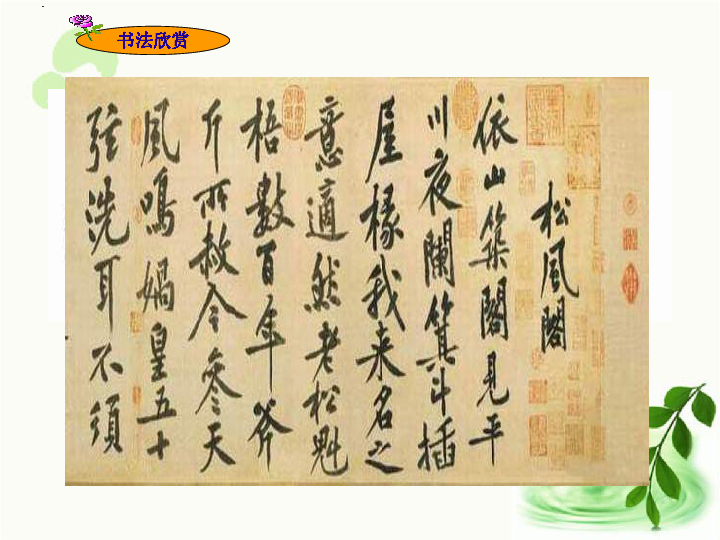 书法欣赏
松風閣
依山築閣見平
川夜闌箕斗插
屋椽我来名之
意適然老松魁
梧數百年斧
斤所赦令參天
風鳴媧皇五十
弦洗耳不須